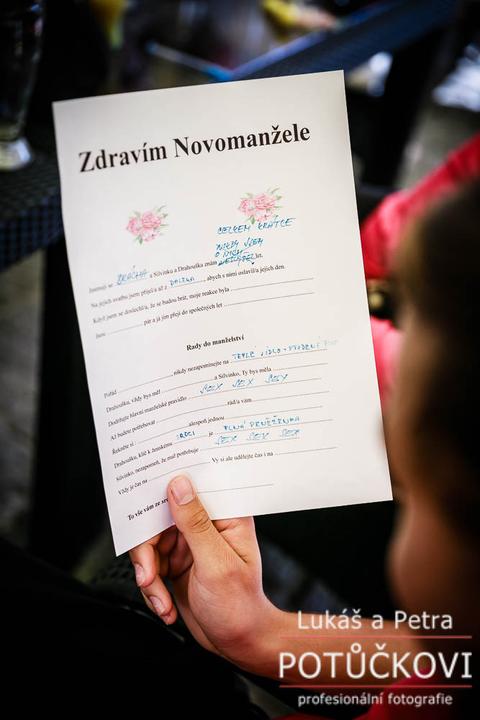 Zdravím Novomanžele
CELKEM KRÁTCE
Jmenuji se BRÁCHA a Silvinku a Drahouška znám let.
Na jejich svatbu jsem přijel/a až z , abych s nimi oslavil/a jejich den.
Když jsem se doslechl/a, že se budou brát, moje reakce byla
Jsou pár a já jim přeji do společných let.
Rady do manželství
Pořád , nikdy nezapomínejte na TEPLÉ JÍDLO - STUDENÉ
Drahoušku, vždy bys měl a Silvinko, Ty bys měla
Dodržujte hlavní manželské pravidlo SEX SEX SEX
Až budete potřebovat rád/a vám
Řekněte si alespoň jednou
Drahoušku, klíč k ženskému SRDCI je PLNÁ PENĚŽENKA
Silvinko, nezapomeň, že muž potřebuje SEX SEX SEX
Vždy je čas na Vy si ale udělejte čas i na
To vše vám ze
Lukáš a Petra
POTŮČKOVI
profesionální fotografie